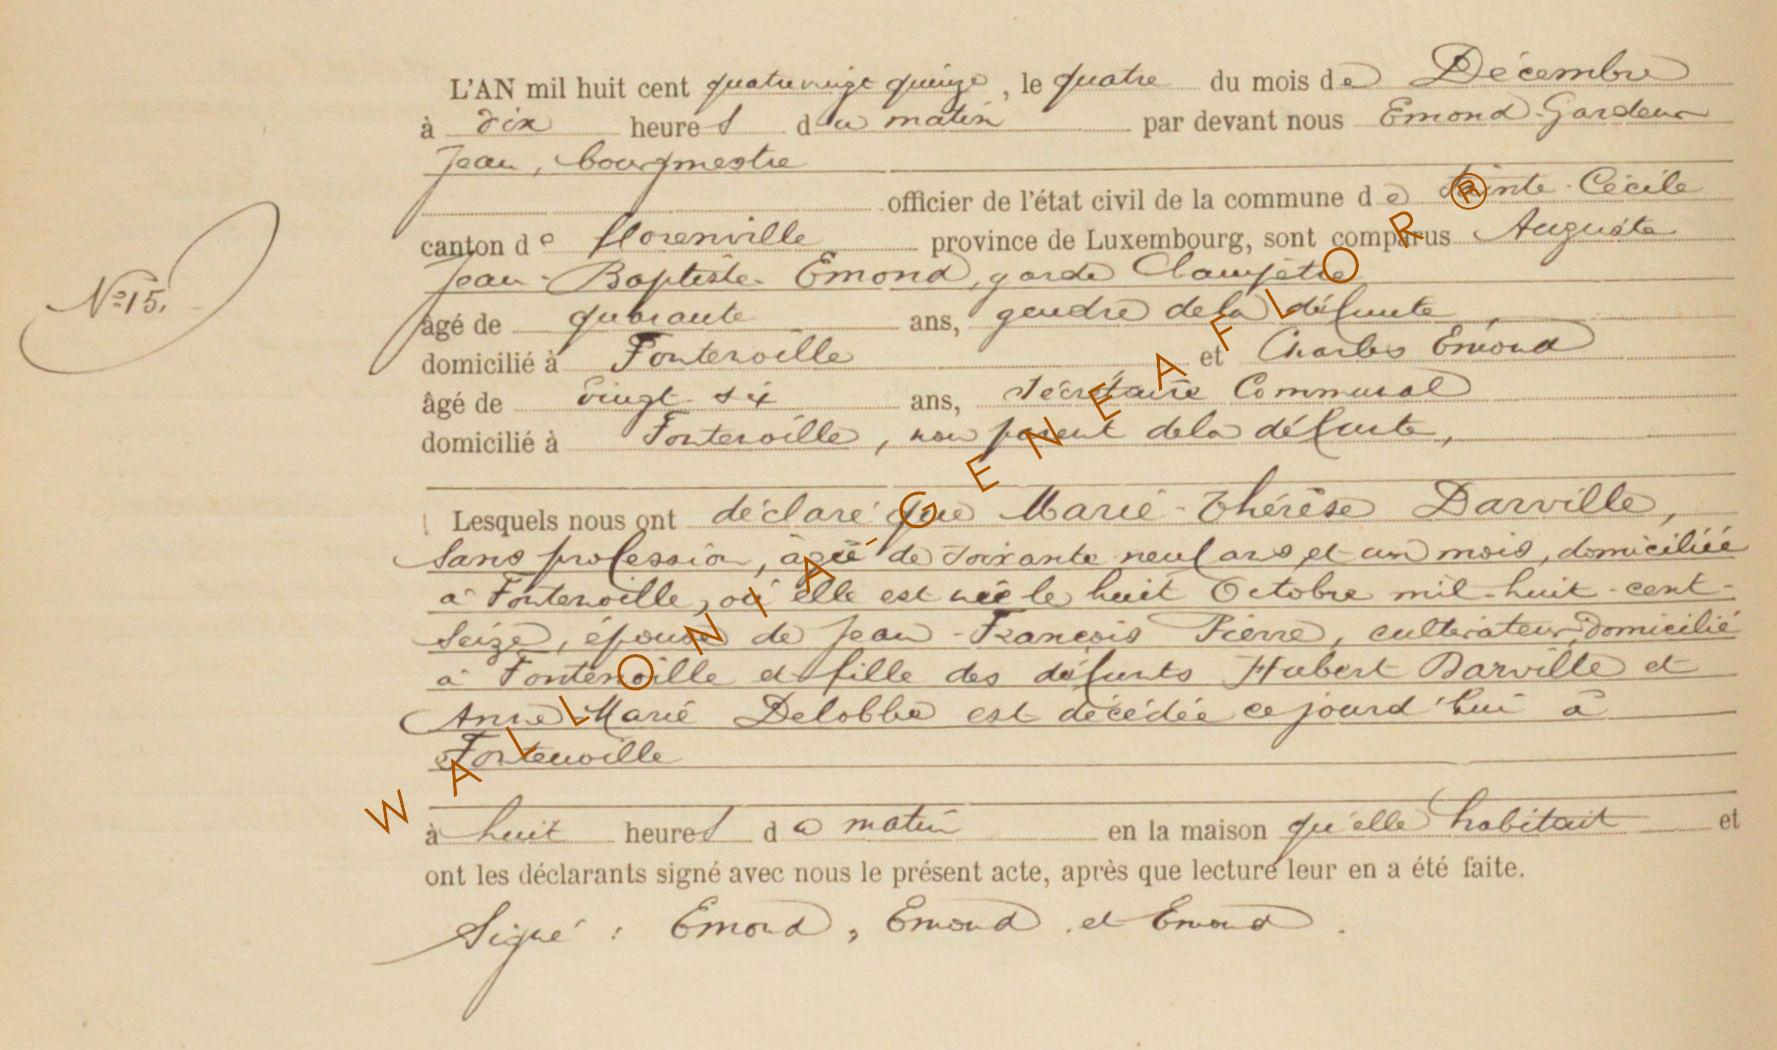 L'AN mil huit cent quatrevingt quinze, le quatre du mois de Décembre
à dix heures du matin par devant nous Emond-Gardeur
Jean, bourgmestre
officier de l'état civil de la commune de Sainte-Cécile
canton de florenville province de Luxembourg, sont comparus Auguste
Jean-Baptiste Emond, garde Champêtre
âgé de quarante ans, gendre de la défunte,
domicilié à Fontenoille et Charles Emond
âgé de vingt-six ans, Secrétaire Communal
domicilié à Fontenoille, non parent de la défunte,
Lesquels nous ont déclaré que Marie-Thérèse Darville,
Sans profession, âgée de Soixante neuf ans et un mois, domiciliée
à Fontenoille, où elle est née le huit Octobre mil-huit-cent-
Seize, épouse de Jean-François Pierre, cultivateur, domicilié
à Fontenoille et fille des défunts Hubert Darville et
Anne Marie Delobbe est décédée ce jourd'hui à
Fontenoille
N° 15.
à huit heures du matin en la maison qu'elle habitait et
ont les déclarants signé avec nous le présent acte, après que lecture leur en a été faite.
Signé : Emond, Emond et Emond.
WALLONIA-GENEAFLOR ®